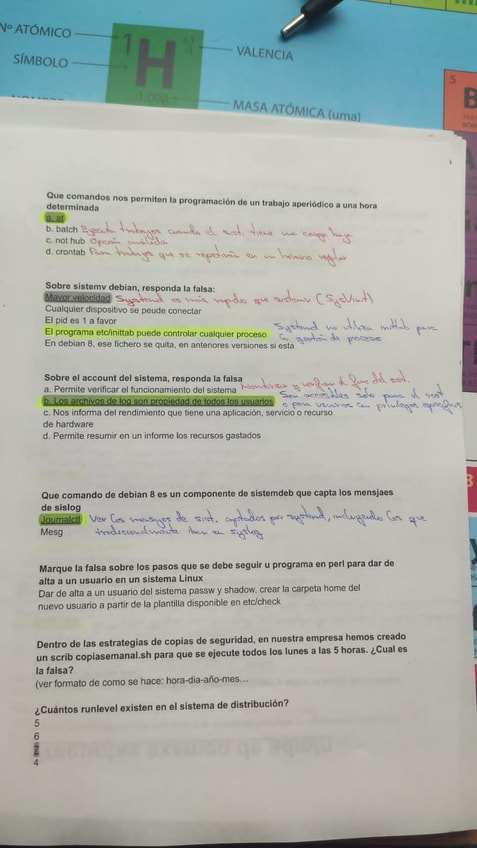 Nº ATÓMICO
1
H
VALENCIA
SÍMBOLO
1,008
MASA ATÓMICA (uma)
5
B
Que comandos nos permiten la programación de un trabajo aperiódico a una hora
determinada
a. at
b. batch Ejecuta trabajos cuando el sist. tiene una carga baja
c. not hub Opción inválida
d. crontab Para trabajos que se repetirán en un horario regular
Sobre systemv debian, responda la falsa:
Mayor velocidad Systemd es más rapido que sistemv (SysVinit)
Cualquier dispositivo se peude conectar
El pid es 1 a favor
El programa etc/inittab puede controlar cualquier proceso Systemd no utiliza inittab para
la gestión de procesos
En debian 8, ese fichero se quita, en anteriores versiones si esta
Sobre el account del sistema, responda la falsa
a. Permite verificar el funcionamiento del sistema Monitoriza y verifica el func del sist.
b. Los archivos de log aon propiedad de todos los usuarios Son accesibles solo para el root
o para usuarios con privilegios específicos
c. Nos informa del rendimiento que tiene una aplicación, servicio o recurso
de hardware
d. Permite resumir en un informe los recursos gastados
Que comando de debian 8 es un componente de sistemdeb que capta los mensjaes
de sislog
Journalctl Ver los mensajes de sist. captados por systemd, incluyendo los que
Mesg tradicionalmente van en syslog
Marque la falsa sobre los pasos que se debe seguir u programa en perl para dar de
alta a un usuario en un sistema Linux
Dar de alta a un usuario del sistema passw y shadow, crear la carpeta home del
nuevo usuario a partir de la plantilla disponible en etc/check
Dentro de las estrategias de copias de seguridad, en nuestra empresa hemos creado
un scrib copiasemanal.sh para que se ejecute todos los lunes a las 5 horas. ¿Cual es
la falsa?
(ver formato de como se hace: hora-dia-año-mes...
¿Cuántos runlevel existen en el sistema de distribución?
5
6
7
4